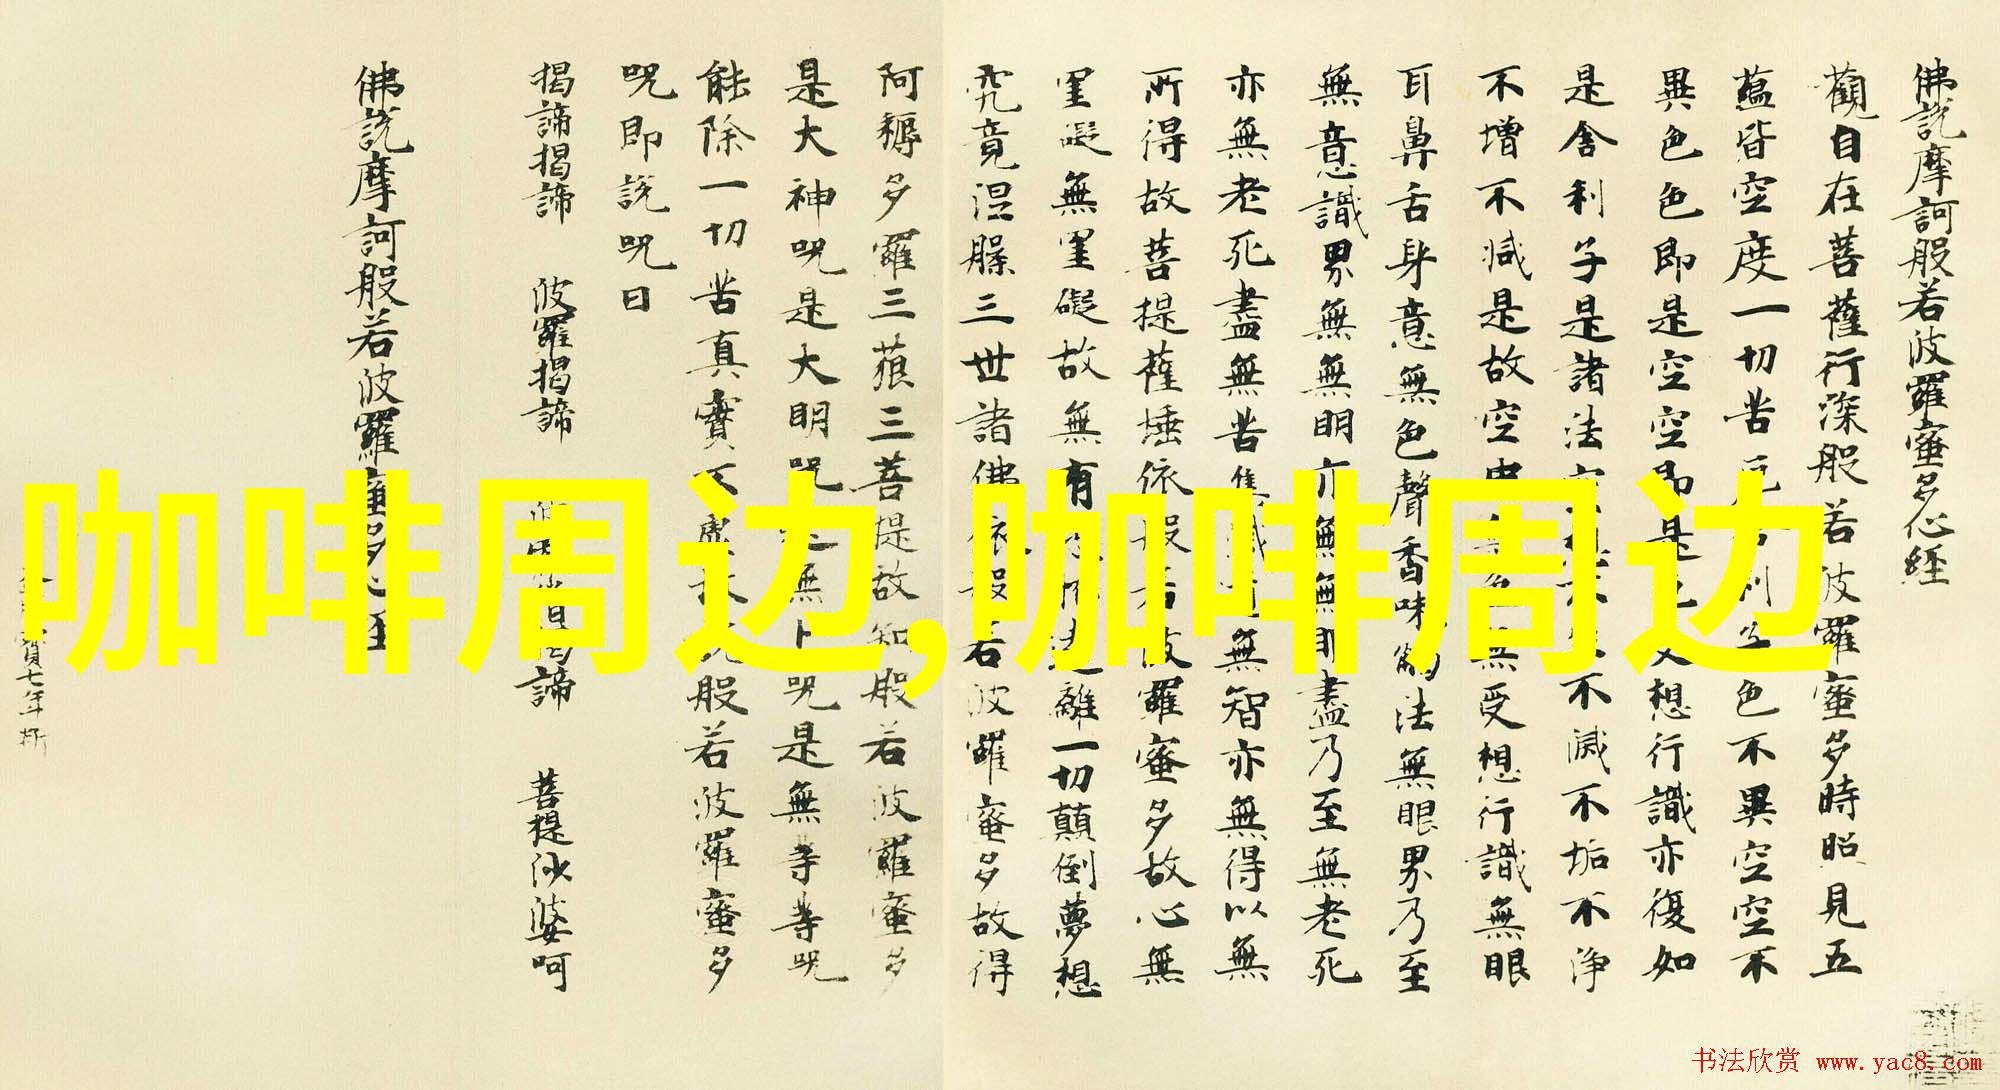 佛説摩訶般若波羅蜜多心經
觀自在菩薩行深般若波羅蜜多時照見五
蘊皆空度一切苦厄舍利子色不異空空不
異色色即是空空即是色受想行識亦復如
是舍利子是諸法空相不生不滅不垢不淨
不增不減是故空中無色無受想行識無眼
耳鼻舌身意無色聲香味觸法無眼界乃至
無意識界無無明亦無無明盡乃至無老死
亦無老死盡無苦集滅道無智亦無得以無
所得故菩提薩埵依般若波羅蜜多故心無
罣礙無罣礙故無有恐怖遠離一切顛倒夢想
究竟涅槃三世諸佛依般若波羅蜜多故得
阿耨多羅三藐三菩提故知般若波羅蜜多
是大神呪是大明呪是無上呪是無等等呪
能除一切苦真實不虛故說般若波羅蜜多
呪即說呪曰
揭諦揭諦 波羅揭諦 波羅僧揭諦 菩提沙婆呵
佛說摩訶般若波羅蜜多心經
七年
咖啡周边,咖啡周边
书法欣赏 www.yac8.com